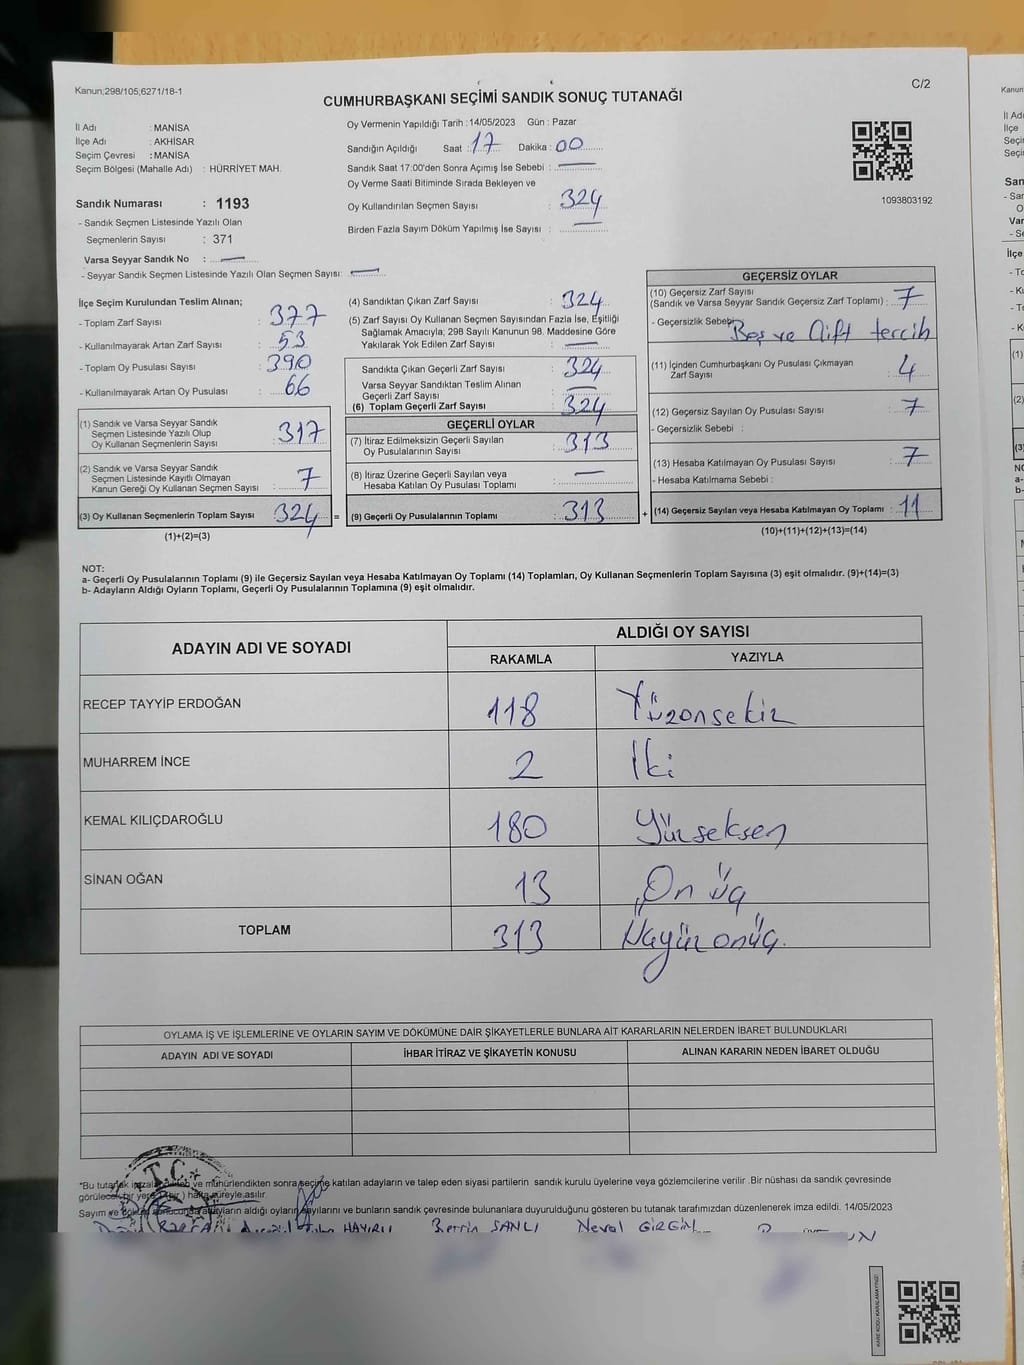 Kanun;298/105;6271/18-1
C/2
CUMHURBAŞKANI SEÇİMİ SANDIK SONUÇ TUTANAĞI
İl Adı : MANİSA
İlçe Adı : AKHİSAR
Seçim Çevresi : MANİSA
Seçim Bölgesi (Mahalle Adı) : HÜRRİYET MAH.
Sandık Numarası : 1193
- Sandık Seçmen Listesinde Yazılı Olan
Seçmenlerin Sayısı : 371
Varsa Seyyar Sandık No : —
- Seyyar Sandık Seçmen Listesinde Yazılı Olan Seçmen Sayısı: —
Oy Vermenin Yapıldığı Tarih : 14/05/2023 Gün : Pazar
Sandığın Açıldığı Saat : 17 Dakika : 00
Sandık Saat 17:00'den Sonra Açımış İse Sebebi : —
Oy Verme Saati Bitiminde Sırada Bekleyen ve
Oy Kullandırılan Seçmen Sayısı : 324
Birden Fazla Sayım Döküm Yapılmış İse Sayısı : —
1093803192
İlçe Seçim Kurulundan Teslim Alınan;
- Toplam Zarf Sayısı : 377
- Kullanılmayarak Artan Zarf Sayısı : 53
- Toplam Oy Pusulası Sayısı : 390
- Kullanılmayarak Artan Oy Pusulası : 66
(1) Sandık ve Varsa Seyyar Sandık
Seçmen Listesinde Yazılı Olup
Oy Kullanan Seçmenlerin Sayısı : 317
(2) Sandık ve Varsa Seyyar Sandık
Seçmen Listesinde Kayıtlı Olmayan
Kanun Gereği Oy Kullanan Seçmen Sayısı : 7
(3) Oy Kullanan Seçmenlerin Toplam Sayısı : 324 =
(1)+(2)=(3)
(4) Sandıktan Çıkan Zarf Sayısı : 324
(5) Zarf Sayısı Oy Kullanan Seçmen Sayısından Fazla İse, Eşitliği
Sağlamak Amacıyla; 298 Sayılı Kanunun 98. Maddesine Göre
Yakılarak Yok Edilen Zarf Sayısı : —
Sandıkta Çıkan Geçerli Zarf Sayısı : 324
Varsa Seyyar Sandıktan Teslim Alınan
Geçerli Zarf Sayısı : —
(6) Toplam Geçerli Zarf Sayısı : 324
GEÇERLİ OYLAR
(7) İtiraz Edilmeksizin Geçerli Sayılan
Oy Pusulalarının Sayısı : 313
(8) İtiraz Üzerine Geçerli Sayılan veya
Hesaba Katılan Oy Pusulası Toplamı : —
(9) Geçerli Oy Pusulalarının Toplamı : 313 +
GEÇERSİZ OYLAR
(10) Geçersiz Zarf Sayısı
(Sandık ve Varsa Seyyar Sandık Geçersiz Zarf Toplamı) : 7
- Geçersizlik Sebebi Boş ve Çift tercih
(11) İçinden Cumhurbaşkanı Oy Pusulası Çıkmayan
Zarf Sayısı : 4
(12) Geçersiz Sayılan Oy Pusulası Sayısı : 7
- Geçersizlik Sebebi :
(13) Hesaba Katılmayan Oy Pusulası Sayısı : 7
- Hesaba Katılmama Sebebi :
(14) Geçersiz Sayılan veya Hesaba Katılmayan Oy Toplamı : 11
(10)+(11)+(12)+(13)=(14)
NOT:
a- Geçerli Oy Pusulalarının Toplamı (9) ile Geçersiz Sayılan veya Hesaba Katılmayan Oy Toplamı (14) Toplamları, Oy Kullanan Seçmenlerin Toplam Sayısına (3) eşit olmalıdır. (9)+(14)=(3)
b- Adayların Aldığı Oyların Toplamı, Geçerli Oy Pusulalarının Toplamına (9) eşit olmalıdır.
ADAYIN ADI VE SOYADI ALDIĞI OY SAYISI
RAKAMLA YAZIYLA
RECEP TAYYİP ERDOĞAN 118 Yüzonsekiz
MUHARREM İNCE 2 İki
KEMAL KILIÇDAROĞLU 180 Yüzseksen
SİNAN OĞAN 13 On üç
TOPLAM 313 Üçyüz onüç.
OYLAMA İŞ VE İŞLEMLERİNE VE OYLARIN SAYIM VE DÖKÜMÜNE DAİR ŞİKAYETLERLE BUNLARA AİT KARARLARIN NELERDEN İBARET BULUNDUKLARI
ADAYIN ADI VE SOYADI İHBAR İTİRAZ VE ŞİKAYETİN KONUSU ALINAN KARARIN NEDEN İBARET OLDUĞU
T.C.
*Bu tutanak ve mühürlendikten sonra seçime katılan adayların ve talep eden siyasi partilerin sandık kurulu üyelerine veya gözlemcilerine verilir .Bir nüshası da sandık çevresinde
görülecek bir yere hafta süreyle asılır.
Sayım ve döküm sonucunda adayların aldığı oyların sayılarını ve bunların sandık çevresinde bulunanlara duyurulduğunu gösteren bu tutanak tarafımızdan düzenlenerek imza edildi. 14/05/2023
HAYIRLI Berrin SANLI Neval GİRGİN